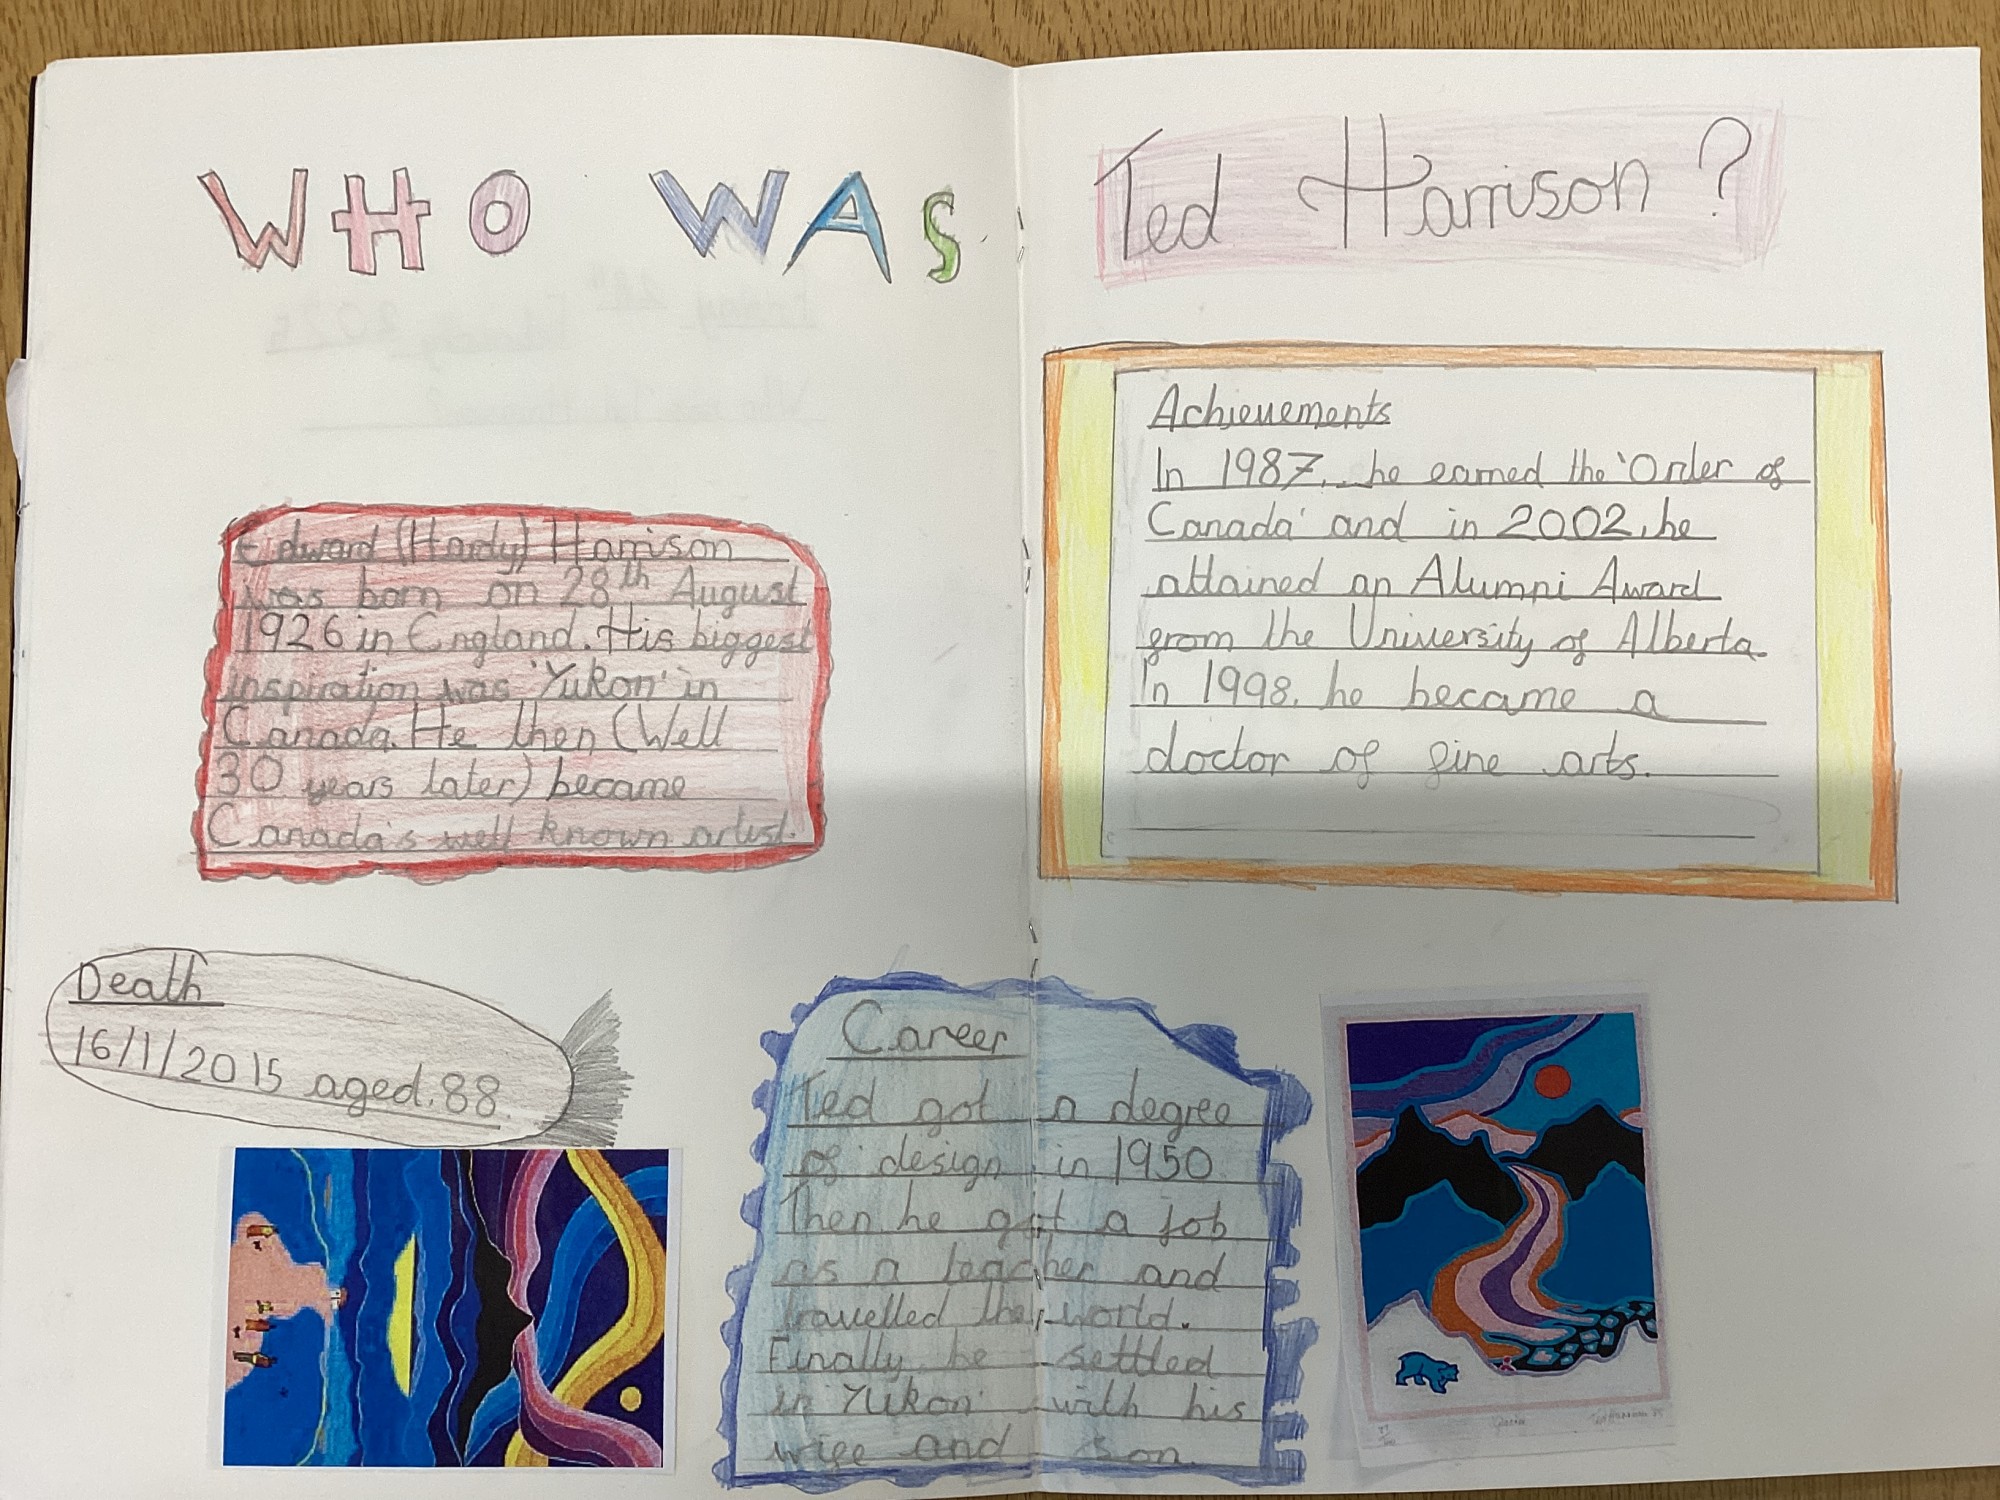 WHO WAS
Ted Harrison?
Edward (Hardy) Harrison
was born on 28th August
1926 in England. His biggest
inspiration was 'Yukon' in
Canada. He then (Well
30 years later) became
Canada's well known artist.
Achievements
In 1987, he earned the 'Order of
Canada' and in 2002, he
attained an Alumni Award
from the University of Alberta.
In 1998, he became a
doctor of fine arts.
Death
16/1/2015 aged.88.
Career
Ted got a degree
of design in 1950
Then he got a job
as a teacher and
travelled the world.
Finally he settled
in 'Yukon' with his
wife and son.